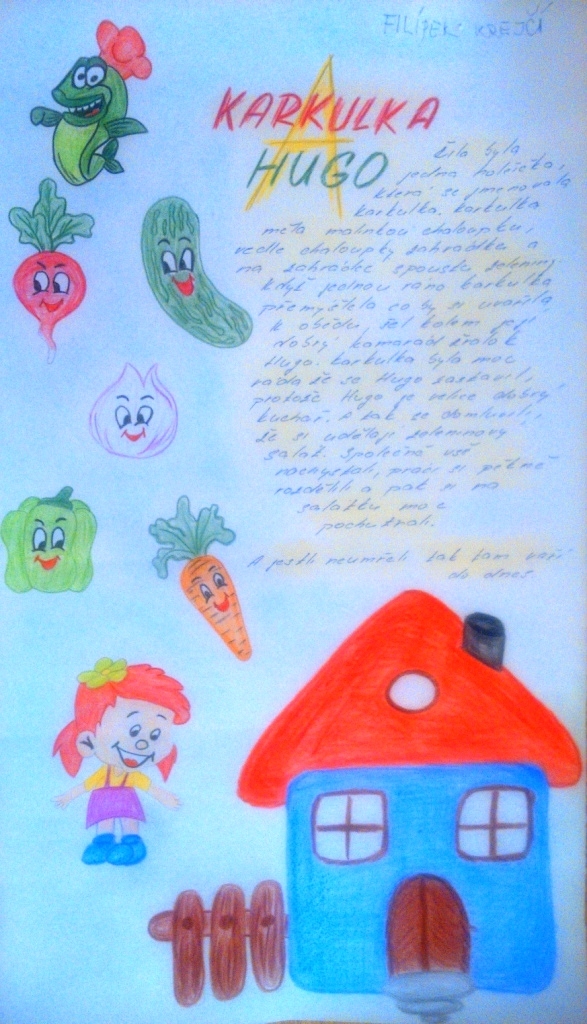 FILÍPEK KREJČÍ
KARKULKA
A
HUGO
Žila byla
jedna holčička,
která se jmenovala
Karkulka. Karkulka
měla malinkou chaloupku,
vedle chaloupky zahrádku a
na zahrádce spoustu zeleniny.
Když jednou ráno Karkulka
přemýšlela co by si uvařila
k obědu, šel kolem její
dobrý kamarád žralok
Hugo. Karkulka byla moc
ráda že se Hugo zastavil,
protože Hugo je velice dobrý
kuchař. A tak se domluvili,
že si udělají zeleninový
salát. Společně vše
nachystali, práci si pěkně
rozdělili a pak si na
salátku moc
pochutnali.
A jestli neumřeli tak tam vaří
do dnes